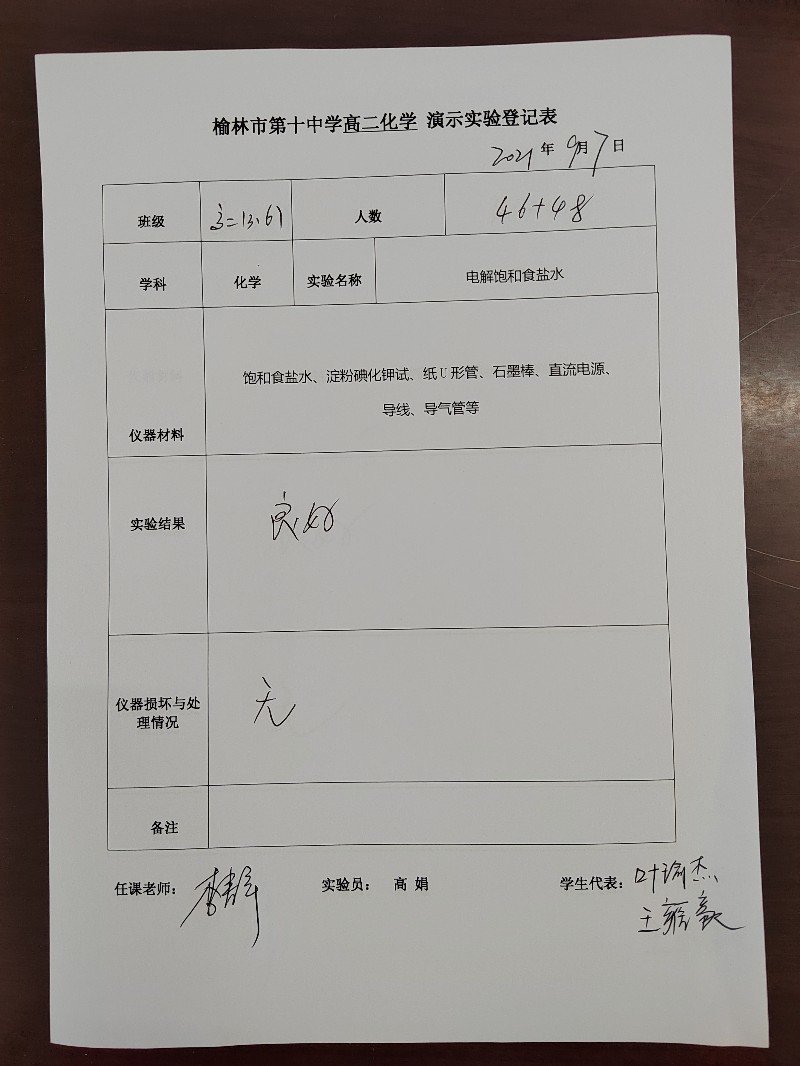 榆林市第十中学高二化学 演示实验登记表
2021年9月7日
班级 人数 46+48
学科 化学 实验名称 电解饱和食盐水
仪器材料 饱和食盐水、淀粉碘化钾试、纸U形管、石墨棒、直流电源、
导线、导气管等
实验结果 良好
仪器损坏与处
理情况 无
备注
任课老师： 实验员： 高 娟 学生代表：叶瑜杰